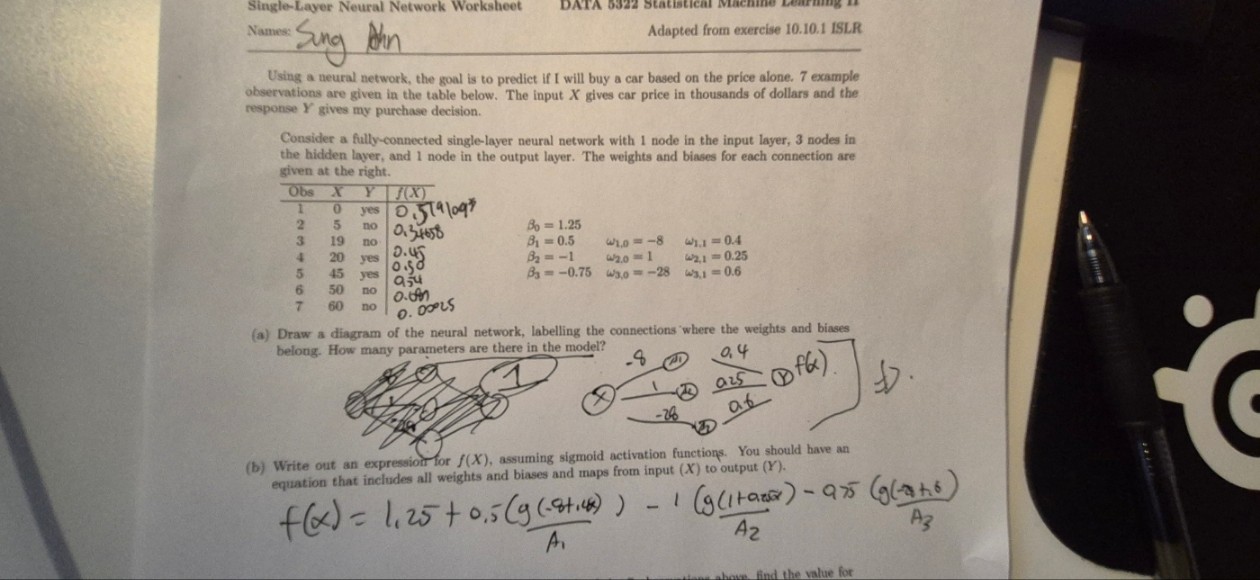 Single-Layer Neural Network Worksheet DATA 5322 Statistical Machine Learning II
Names: Sung Ahn Adapted from exercise 10.10.1 ISLR
Using a neural network, the goal is to predict if I will buy a car based on the price alone. 7 example
observations are given in the table below. The input X gives car price in thousands of dollars and the
response Y gives my purchase decision.
Consider a fully-connected single-layer neural network with 1 node in the input layer, 3 nodes in
the hidden layer, and 1 node in the output layer. The weights and biases for each connection are
given at the right.
Obs X Y f(X)
1 0 yes
2 5 no 0.3458
3 19 no 0.45
4 20 yes 0.50
5 45 yes 0.54
6 50 no
7 60 no 0.00025
β₀ = 1.25
β₁ = 0.5 ω₁,₀ = −8 ω₁,₁ = 0.4
β₂ = −1 ω₂,₀ = 1 ω₂,₁ = 0.25
β₃ = −0.75 ω₃,₀ = −28 ω₃,₁ = 0.6
(a) Draw a diagram of the neural network, labelling the connections where the weights and biases
belong. How many parameters are there in the model?
1
-8 A₁ 0,4
X 1 A₂ 0.25 Y f(x)
-28 A₃ 0.6
(b) Write out an expression for f(X), assuming sigmoid activation functions. You should have an
equation that includes all weights and biases and maps from input (X) to output (Y).
f(x) = 1.25 + 0.5(g(-8+.4x)) - 1(g(1+0.25x)) - 0.75(g(-28+.6
A₁ A₂ A₃
above, find the value for